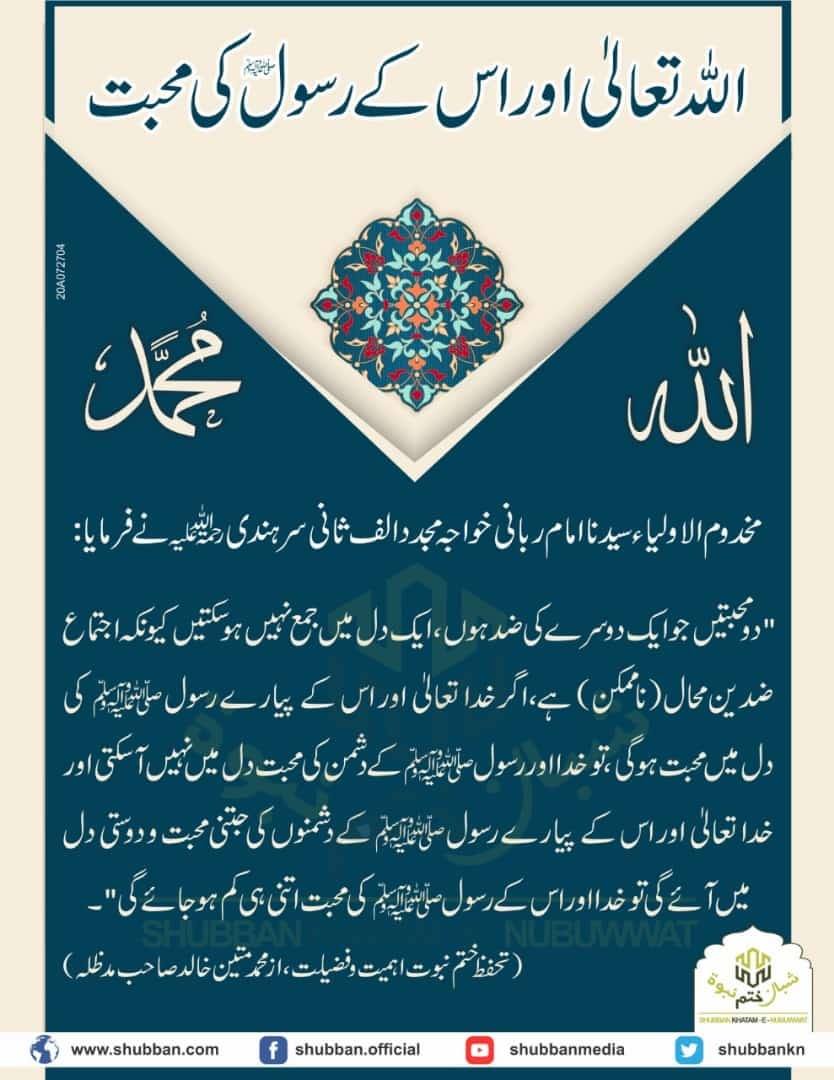 اللہ تعالیٰ اور اس کے رسول ﷺ کی محبت
20A072704
اللہ
مُحمَّد
مخدوم الاولیاء سیدنا امام ربانی خواجہ مجدد الف ثانی سرہندی رحمۃ اللہ علیہ نے فرمایا:
"دو محبتیں جو ایک دوسرے کی ضد ہوں، ایک دل میں جمع نہیں ہوسکتیں کیونکہ اجتماع
ضدین محال (ناممکن) ہے، اگر خدا تعالیٰ اور اس کے پیارے رسول ﷺ کی
دل میں محبت ہوگی، تو خدا اور رسول ﷺ کے دشمن کی محبت دل میں نہیں آسکتی اور
خدا تعالیٰ اور اس کے پیارے رسول ﷺ کے دشمنوں کی جتنی محبت و دوستی دل
میں آئے گی تو خدا اور اس کے رسول ﷺ کی محبت اتنی ہی کم ہوجائے گی"۔
شبان ختم نبوۃ
SHUBBAN NUBUWWAT
(تحفظ ختم نبوت اہمیت و فضیلت، از محمد متین خالد صاحب مدظلہ)
شبان ختم نبوۃ
SHUBBAN KHATAM-E-NUBUWWAT
www.shubban.com shubban.official shubbanmedia shubbankn